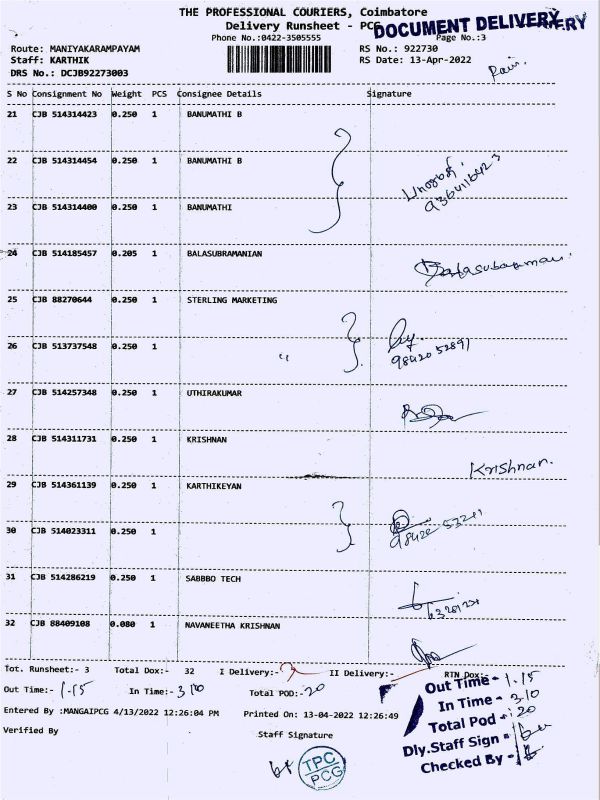 THE PROFESSIONAL COURIERS, Coimbatore
Delivery Runsheet - PCG
DOCUMENT DELIVERY
Phone No.:0422-3505555
Page No.:3
Route: MANIYAKARAMPAYAM
RS No.: 922730
Staff: KARTHIK
RS Date: 13-Apr-2022
DRS No.: DCJB92273003
S No Consignment No Weight PCS Consignee Details Signature
21 CJB 514314423 0.250 1 BANUMATHI B
22 CJB 514314454 0.250 1 BANUMATHI B
23 CJB 514314400 0.250 1 BANUMATHI
24 CJB 514185457 0.205 1 BALASUBRAMANIAN
Balasubramani
25 CJB 88270644 0.250 1 STERLING MARKETING
26 CJB 513737548 0.250 1 "
98420 52891
27 CJB 514257348 0.250 1 UTHIRAKUMAR
28 CJB 514311731 0.250 1 KRISHNAN
Krishnan.
29 CJB 514361139 0.250 1 KARTHIKEYAN
30 CJB 514023311 0.250 1
31 CJB 514286219 0.250 1 SABBBO TECH
32 CJB 88409108 0.080 1 NAVANEETHA KRISHNAN
Tot. Runsheet:- 3 Total Dox:- 32 I Delivery:- II Delivery:- RTN Dox:
Out Time:- 1.15 In Time:- 310 Total POD:- 20
Entered By :MANGAIPCG 4/13/2022 12:26:04 PM Printed On: 13-04-2022 12:26:49
Verified By Staff Signature
Out Time - 1.15
In Time - 310
Total Pod - 20
Dly.Staff Sign -
Checked By -
TPC
PCG